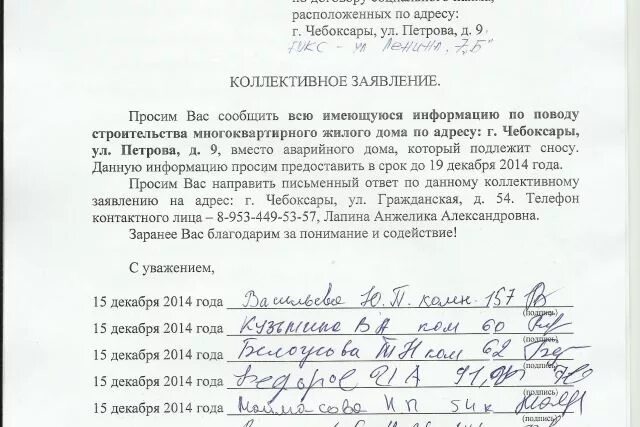 по договору социального найма,
расположенных по адресу:
г. Чебоксары, ул. Петрова, д. 9
ГУКС - ул Ленина 7 „Б"
КОЛЛЕКТИВНОЕ ЗАЯВЛЕНИЕ.
Просим Вас сообщить всю имеющуюся информацию по поводу
строительства многоквартирного жилого дома по адресу: г. Чебоксары,
ул. Петрова, д. 9, вместо аварийного дома, который подлежит сносу.
Данную информацию просим предоставить в срок до 19 декабря 2014 года.
Просим Вас направить письменный ответ по данному коллективному
заявлению на адрес: г. Чебоксары, ул. Гражданская, д. 54. Телефон
контактного лица – 8-953-449-53-57, Лапина Анжелика Александровна.
Заранее Вас благодарим за понимание и содействие!
С уважением,
15 декабря 2014 года Васильева Ю.П. комн. 157
(подпись)
15 декабря 2014 года Кузьмина В А ком 60
(подпись)
15 декабря 2014 года Белоусова Т Н ком 62
(подпись)
15 декабря 2014 года Федоров И А 91,
(подпись)
15 декабря 2014 года И П 54 к
(подпись)